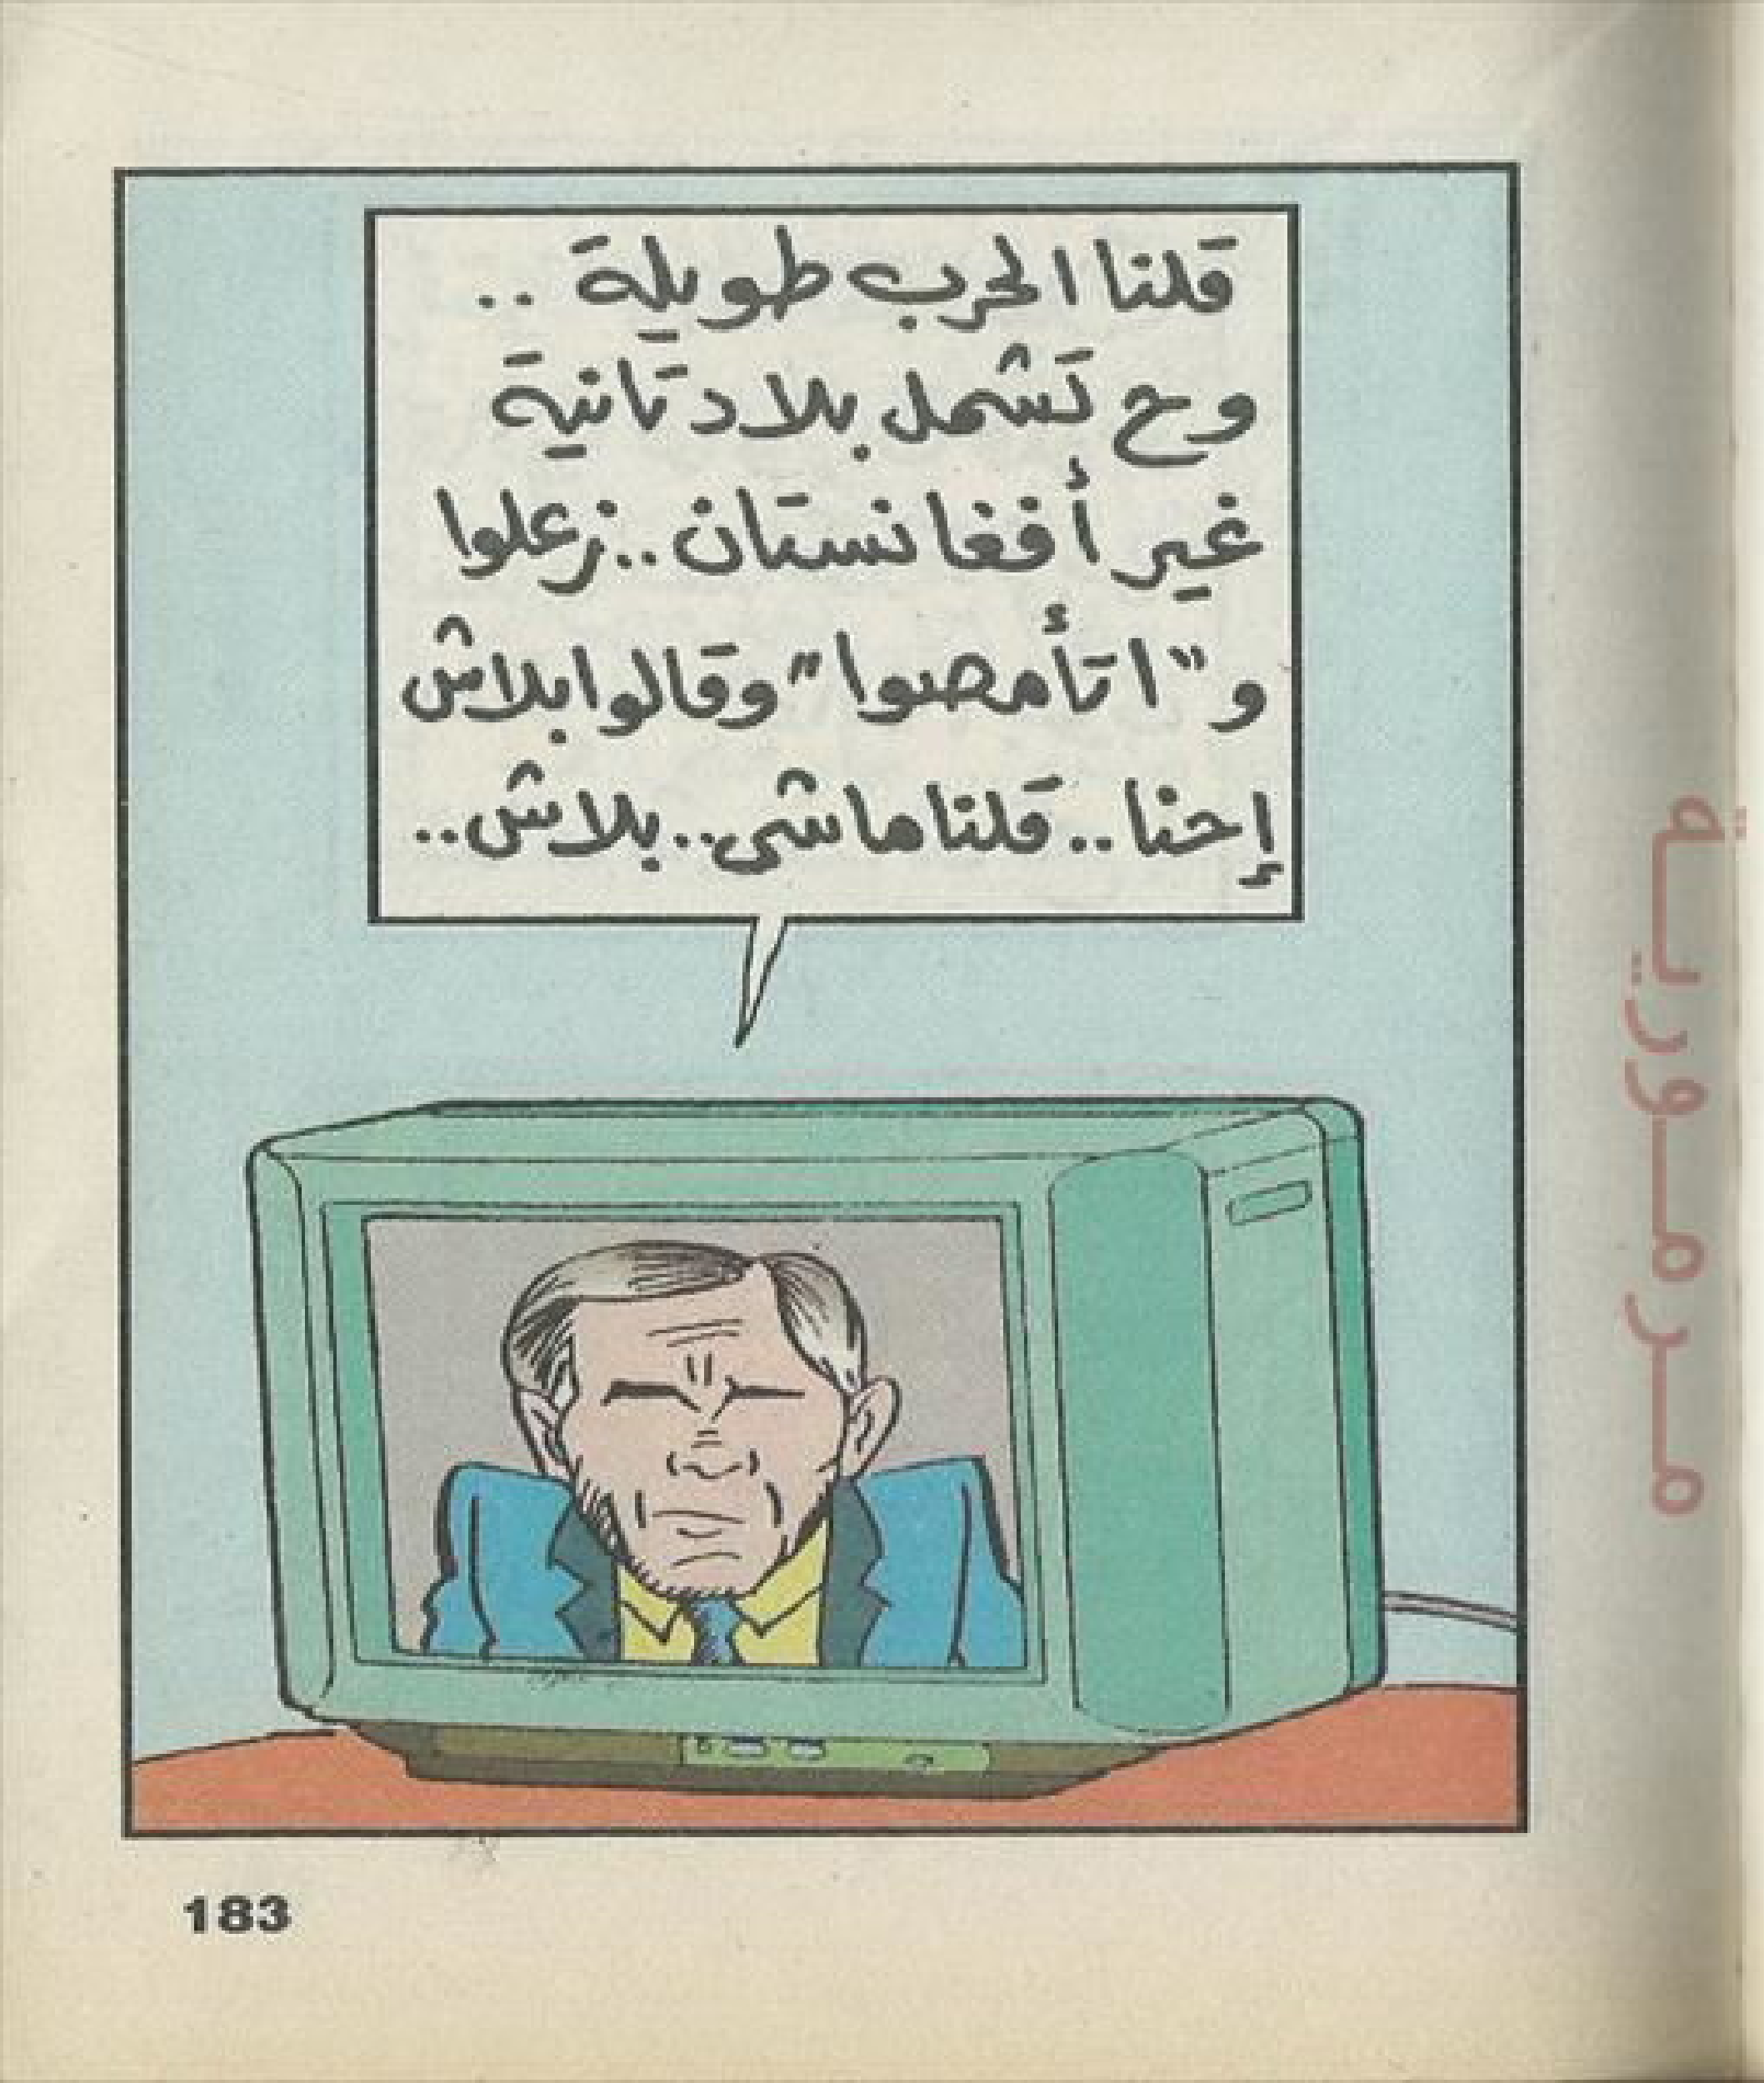 قلنا الحرب طويلة ..
وح تشمل بلاد تانية
غير أفغانستان .. زعلوا
و"اتأمصوا" وقالوا بلاش
إحنا .. قلنا ماشى .. بلاش ..
مرمورية
183